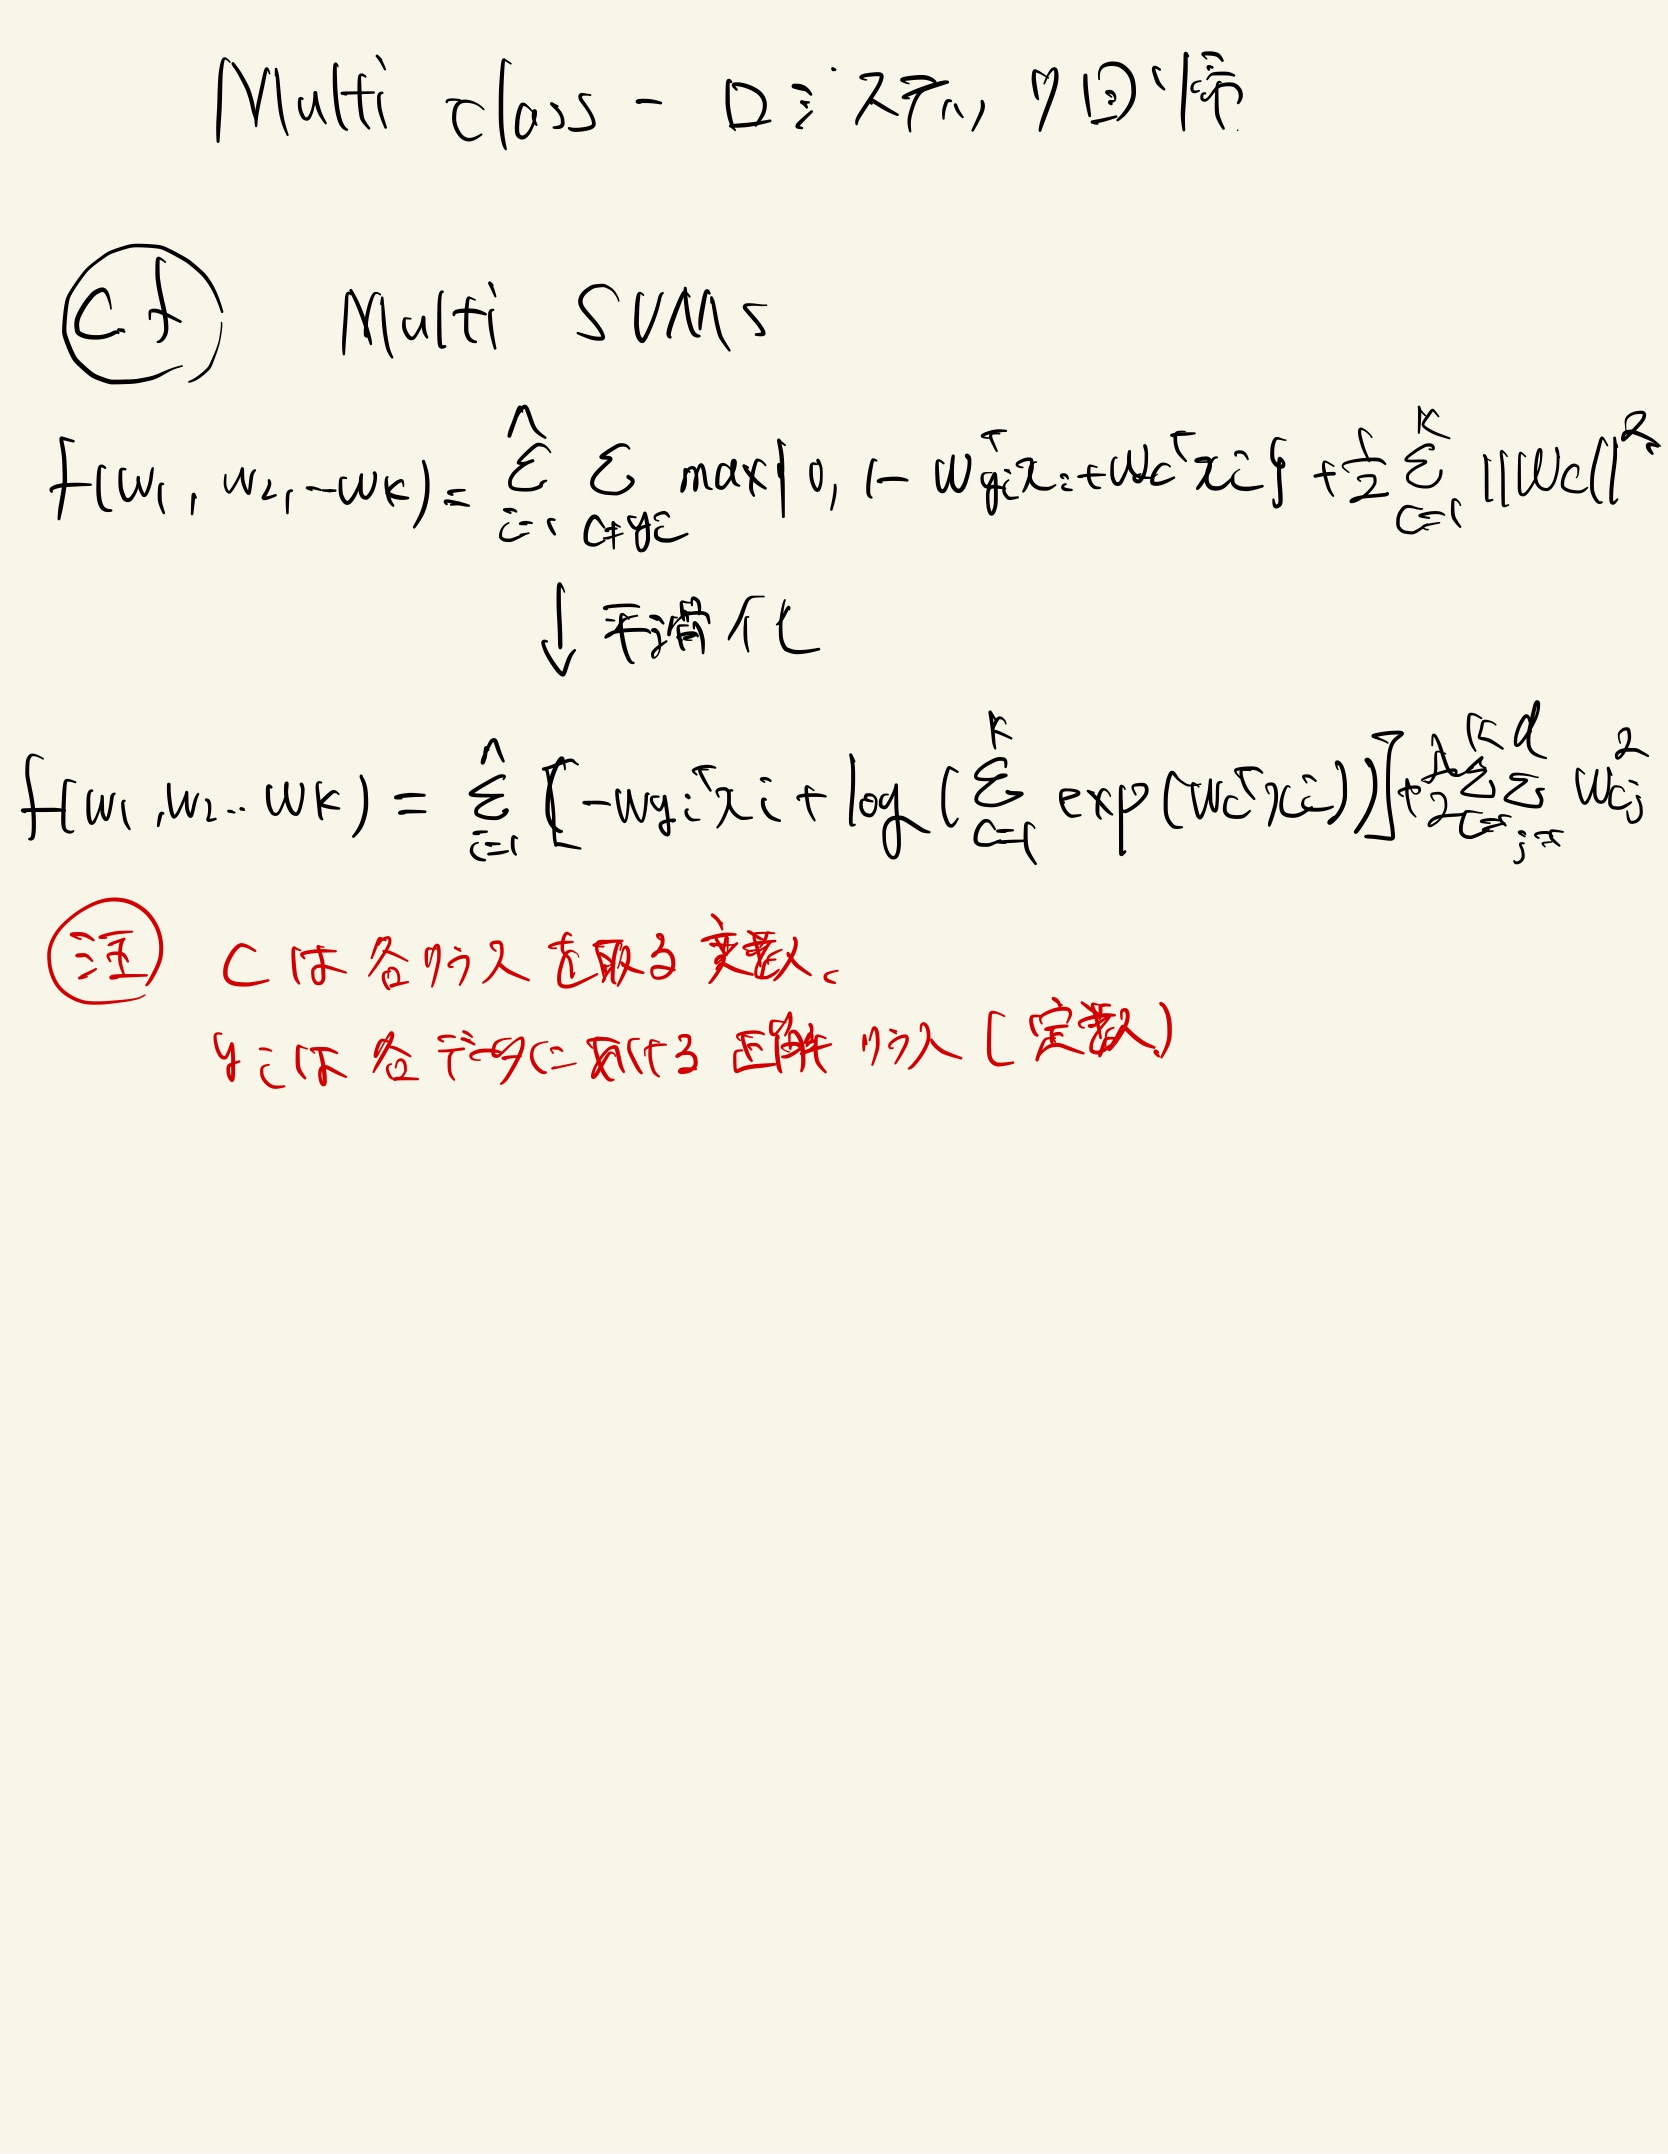 Multi class - ロジスティック回帰
cf Multi SVMs
f(w₁, w₂, -wk) = Σⁿᵢ₌₁ Σ_c≠yi max{0, 1 - w_yiᵀxi + wcᵀxi} + 1/2 Σᵏc=1 ||wc||²
↓ 平滑化
f(w₁, w₂.. wk) = Σⁿᵢ₌₁ [-w_yiᵀxi + log(Σᵏc=1 exp(wcᵀxi))] + λ/2 Σᵏc=1 Σᵈj=1 wcj²
注 Cは各クラスを取る変数。
yiは各データにおける正解クラス(定数)